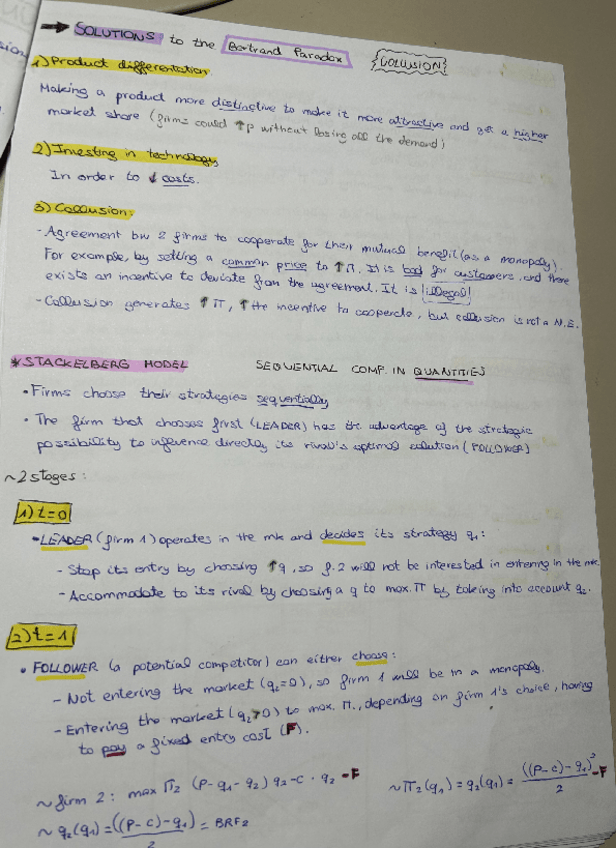 → SOLUTIONS to the Bertrand Paradox {COLLUSION}
1) Product differentiation
Making a product more distinctive to make it more attractive and get a higher
market share (firms could ↑p without losing all the demand)
2) Investing in technology
In order to ↓ costs.
3) Collusion:
- Agreement bw 2 firms to cooperate for their mutual benefit (as a monopoly).
For example, by setting a common price to ↑π. It is bad for customers, and there
exists an incentive to deviate from the agreement. It is illegal!
- Collusion generates ↑π, ↑the incentive to cooperate, but collusion is not a N.E.
* STACKELBERG MODEL SEQUENTIAL COMP. IN QUANTITIES
• Firms choose their strategies sequentially
• The firm that chooses first (LEADER) has the advantage of the strategic
possibility to influence directly its rival's optimal solution (FOLLOWER)
~2 stages:
1) t=0
• LEADER (firm 1) operates in the mk and decides its strategy q₁:
- Stop its entry by choosing ↑q, so f.2 will not be interested in entering in the mk
- Accommodate to its rival by choosing a q to max. π by taking into account q₂.
2) t=1
• FOLLOWER (a potential competitor) can either choose:
- Not entering the market (q₂=0), so firm 1 will be in a monopoly.
- Entering the market (q₂>0) to max. π., depending on firm 1's choice, having
to pay a fixed entry cost (F).
~ firm 2: max π₂ (P-q₁-q₂) q₂-c · q₂ -F ~ π₂(q₁) = q₂(q₁) = ((P-c)-q₁)² / 2 -F
~ q₂(q₁) = ((P-c)-q₁) / 2 = BRF₂